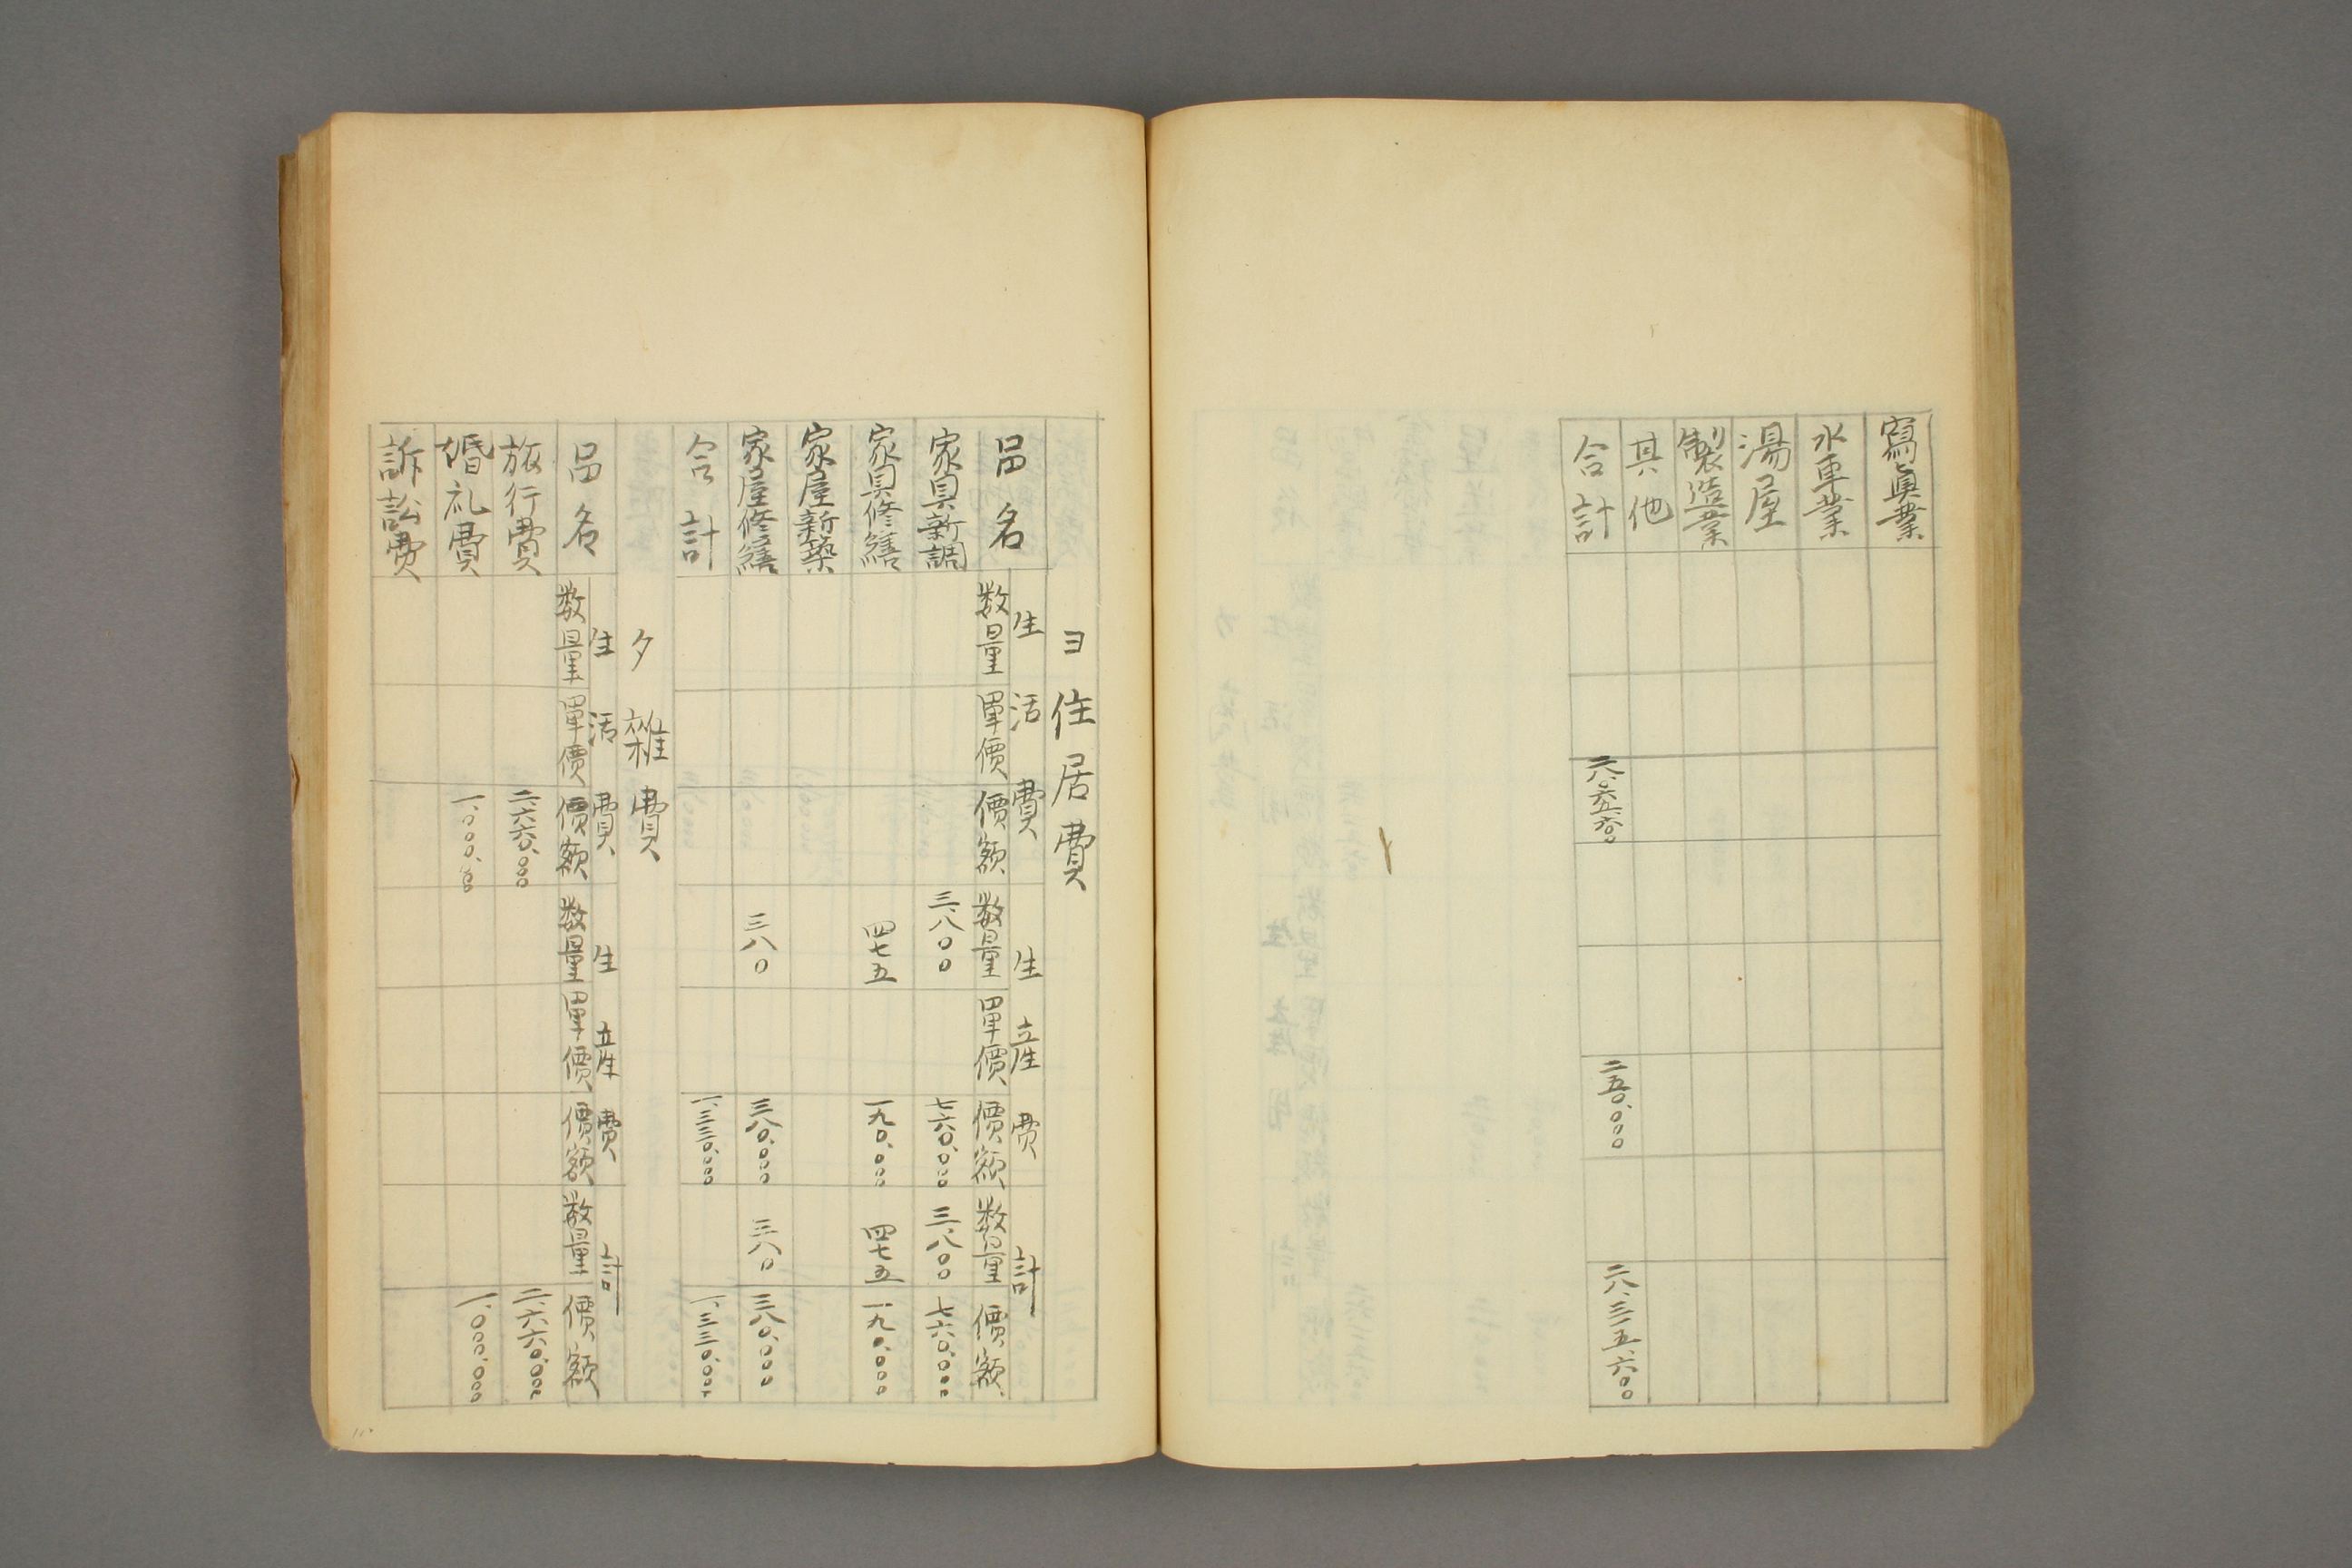 寫眞業
水車業
湯屋
製造業
其他
合計 二八、〇六五、六〇〇 二五〇、〇〇〇 二八、三一五、六〇〇
ヨ 住居費
生活費 生産費 計
品名 数量 單價 價額 数量 單價 價額 数量 價額
家具新調 三、八〇〇 七六〇、〇〇〇 三、八〇〇 七六〇、〇〇〇
家具修繕 四七五 一九〇、〇〇〇 四七五 一九〇、〇〇〇
家屋新築
家屋修繕 三八〇 三八〇、〇〇〇 三八〇 三八〇、〇〇〇
合計 一、三三〇、〇〇〇 一、三三〇、〇〇〇
タ 雑費
生活費 生産費 計
品名 数量 單價 價額 数量 單價 價額 数量 價額
旅行費 二、六六〇、〇〇〇 二、六六〇、〇〇〇
婚礼費 一、〇〇〇、〇〇〇 一、〇〇〇、〇〇〇
訴訟費